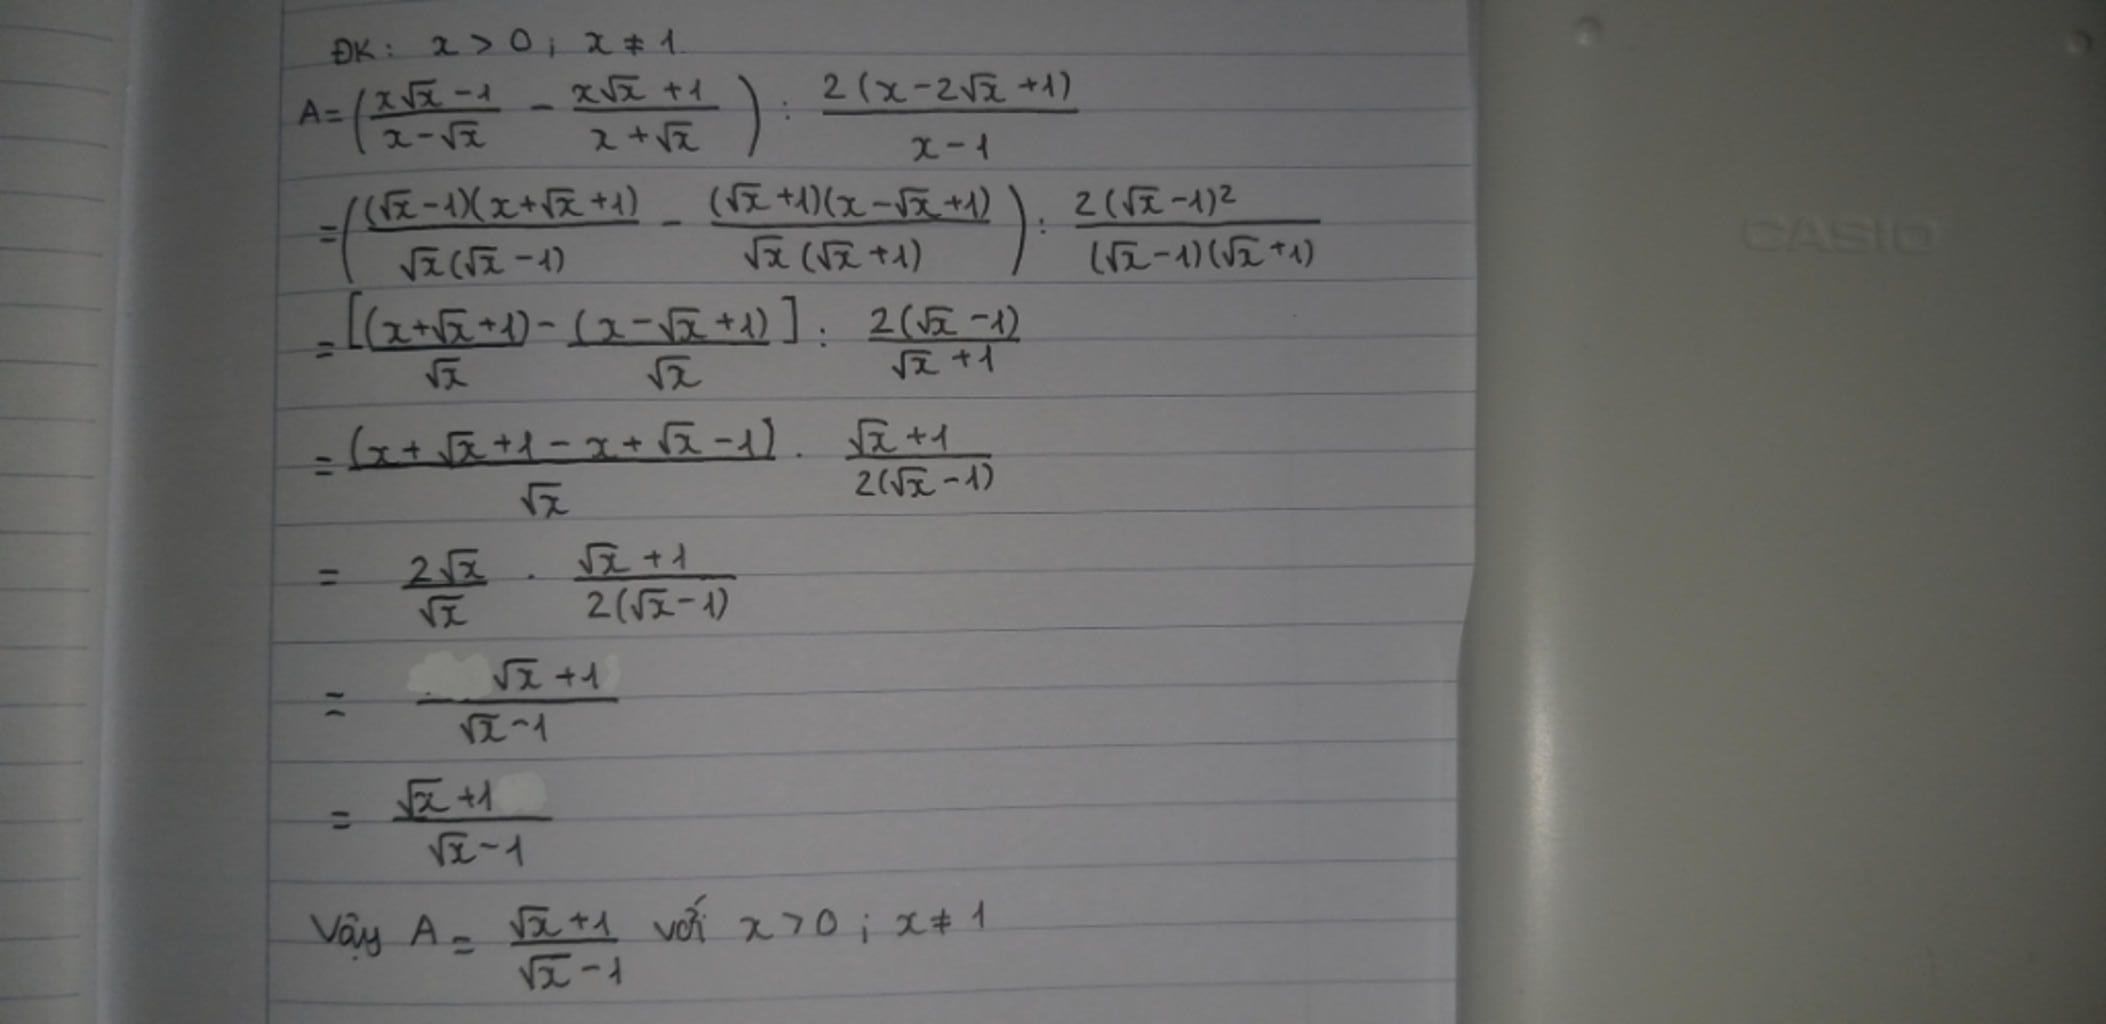 ĐK: x > 0 ; x ≠ 1
A = ( (x√x - 1)/(x - √x) - (x√x + 1)/(x + √x) ) : (2(x - 2√x + 1))/(x - 1)
= ( ((√x - 1)(x + √x + 1))/(√x(√x - 1)) - ((√x + 1)(x - √x + 1))/(√x(√x + 1)) ) : (2(√x - 1)²)/((√x - 1)(√x + 1))
= [ (x + √x + 1)/√x - (x - √x + 1)/√x ] : (2(√x - 1))/(√x + 1)
= (x + √x + 1 - x + √x - 1)/√x . (√x + 1)/(2(√x - 1))
= (2√x)/√x . (√x + 1)/(2(√x - 1))
= (√x + 1)/(√x - 1)
= (√x + 1)/(√x - 1)
Vậy A = (√x + 1)/(√x - 1) với x > 0 ; x ≠ 1
CASIO